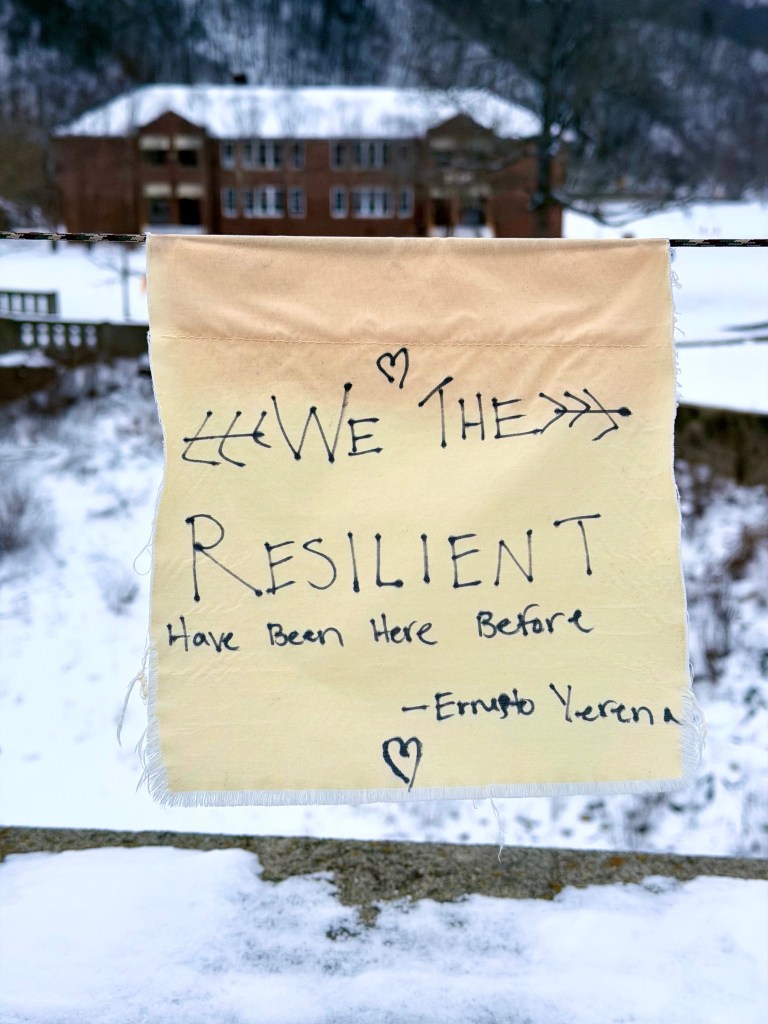 We The
Resilient
Have Been Here Before
- Ernesto Yerena